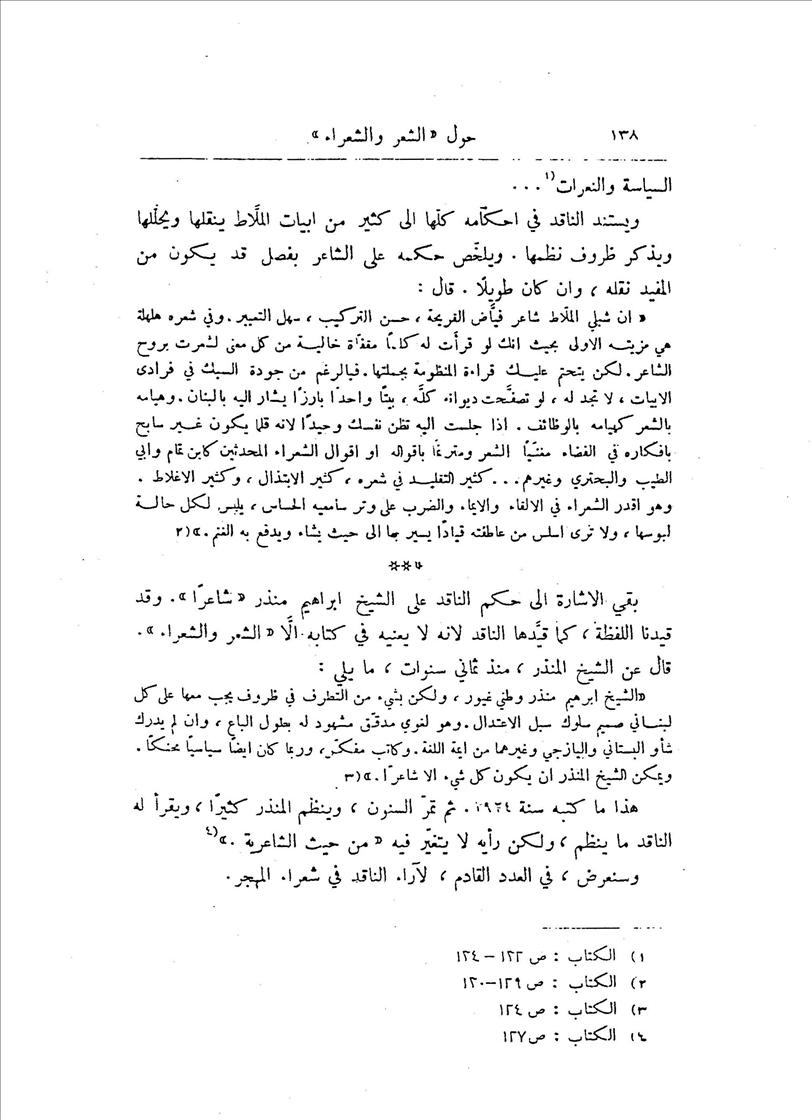 ١٣٨ حول «الشعر والشعراء»
السياسة والنعرات(١ . . .
ويستند الناقد في احكامه كلّها الى كثير من ابيات الملَّاط ينقلها ويحلّلها
ويذكر ظروف نظمها . ويلخّص حكمه على الشاعر بفصل قد يكون من
المفيد نقله ، وان كان طويلًا . قال :
« ان شبلي الملّاط شاعر فيَّاض القريحة ، حسن التركيب ، سهل التعبير . وفي شعره هلهلة
هي مزيته الاولى بحيث انك لو قرأت له كلامًا مقفّاة خالية من كل معنى لشعرت بروح
الشاعر . لكن يتحتم عليك قراءة المنظومة بجملتها . فبالرغم من جودة السبك في فرادى
الابيات ، لا تجد له ، لو تصفَّحت ديوانه كلَّه ، بيتًا واحدًا بارزًا يشار اليه بالبنان . وهيامه
بالشعر كهيامه بالوظائف . اذا جلست اليه تظن نفسك وحيدًا لانه قلما يكون غير سابح
بافكاره في الفضاء مغنّيًا الشعر ومترنمًا باقواله او اقوال الشعراء المحدثين كابن تمام وابي
الطيب والبحتري وغيرهم . . . كثير التقليد في شعره ، كثير الابتذال ، وكثير الاغلاط .
وهو اقدر الشعراء في الالقاء والايماء والضرب على وتر سامعيه الحساس ، يلبس لكل حالة
لبوسها ، ولا ترى اسلس من عاطفته قيادًا يسير بها الى حيث يشاء ويدفع به الغنم . »(٢
***
بقي الاشارة الى حكم الناقد على الشيخ ابراهيم منذر « شاعرًا » . وقد
قيدنا اللفظة ، كما قيَّدها الناقد لانه لا يعنيه في كتابه الَّا « الشعر والشعراء » .
قال عن الشيخ المنذر ، منذ ثماني سنوات ، ما يلي :
«الشيخ ابرهيم منذر وطني غيور ، ولكن بشيء من التطرف في ظروف يجب معها على كل
لبناني صميم سلوك سبل الاعتدال . وهو لغوي مدقّق مشهود له بطول الباع ، وان لم يدرك
شأو البستاني واليازجي وغيرهما من ايمة اللغة . وكاتب مفكّر ، وربما كان ايضًا سياسيًّا محنكًا .
ويمكن الشيخ المنذر ان يكون كل شيء الا شاعرًا . »(٣
هذا ما كتبه سنة ١٩٢٤ . ثم تمرّ السنون ، وينظم المنذر كثيرًا ، ويقرأ له
الناقد ما ينظم ، ولكن رأيه لا يتغيّر فيه « من حيث الشاعرية . »(٤
وسنعرض ، في العدد القادم ، لآراء الناقد في شعراء المهجر .
١) الكتاب : ص ١٢٢ – ١٢٤
٢) الكتاب : ص ١٢٩–١٢٠
٣) الكتاب : ص ١٢٤
٤) الكتاب : ص ١٢٧